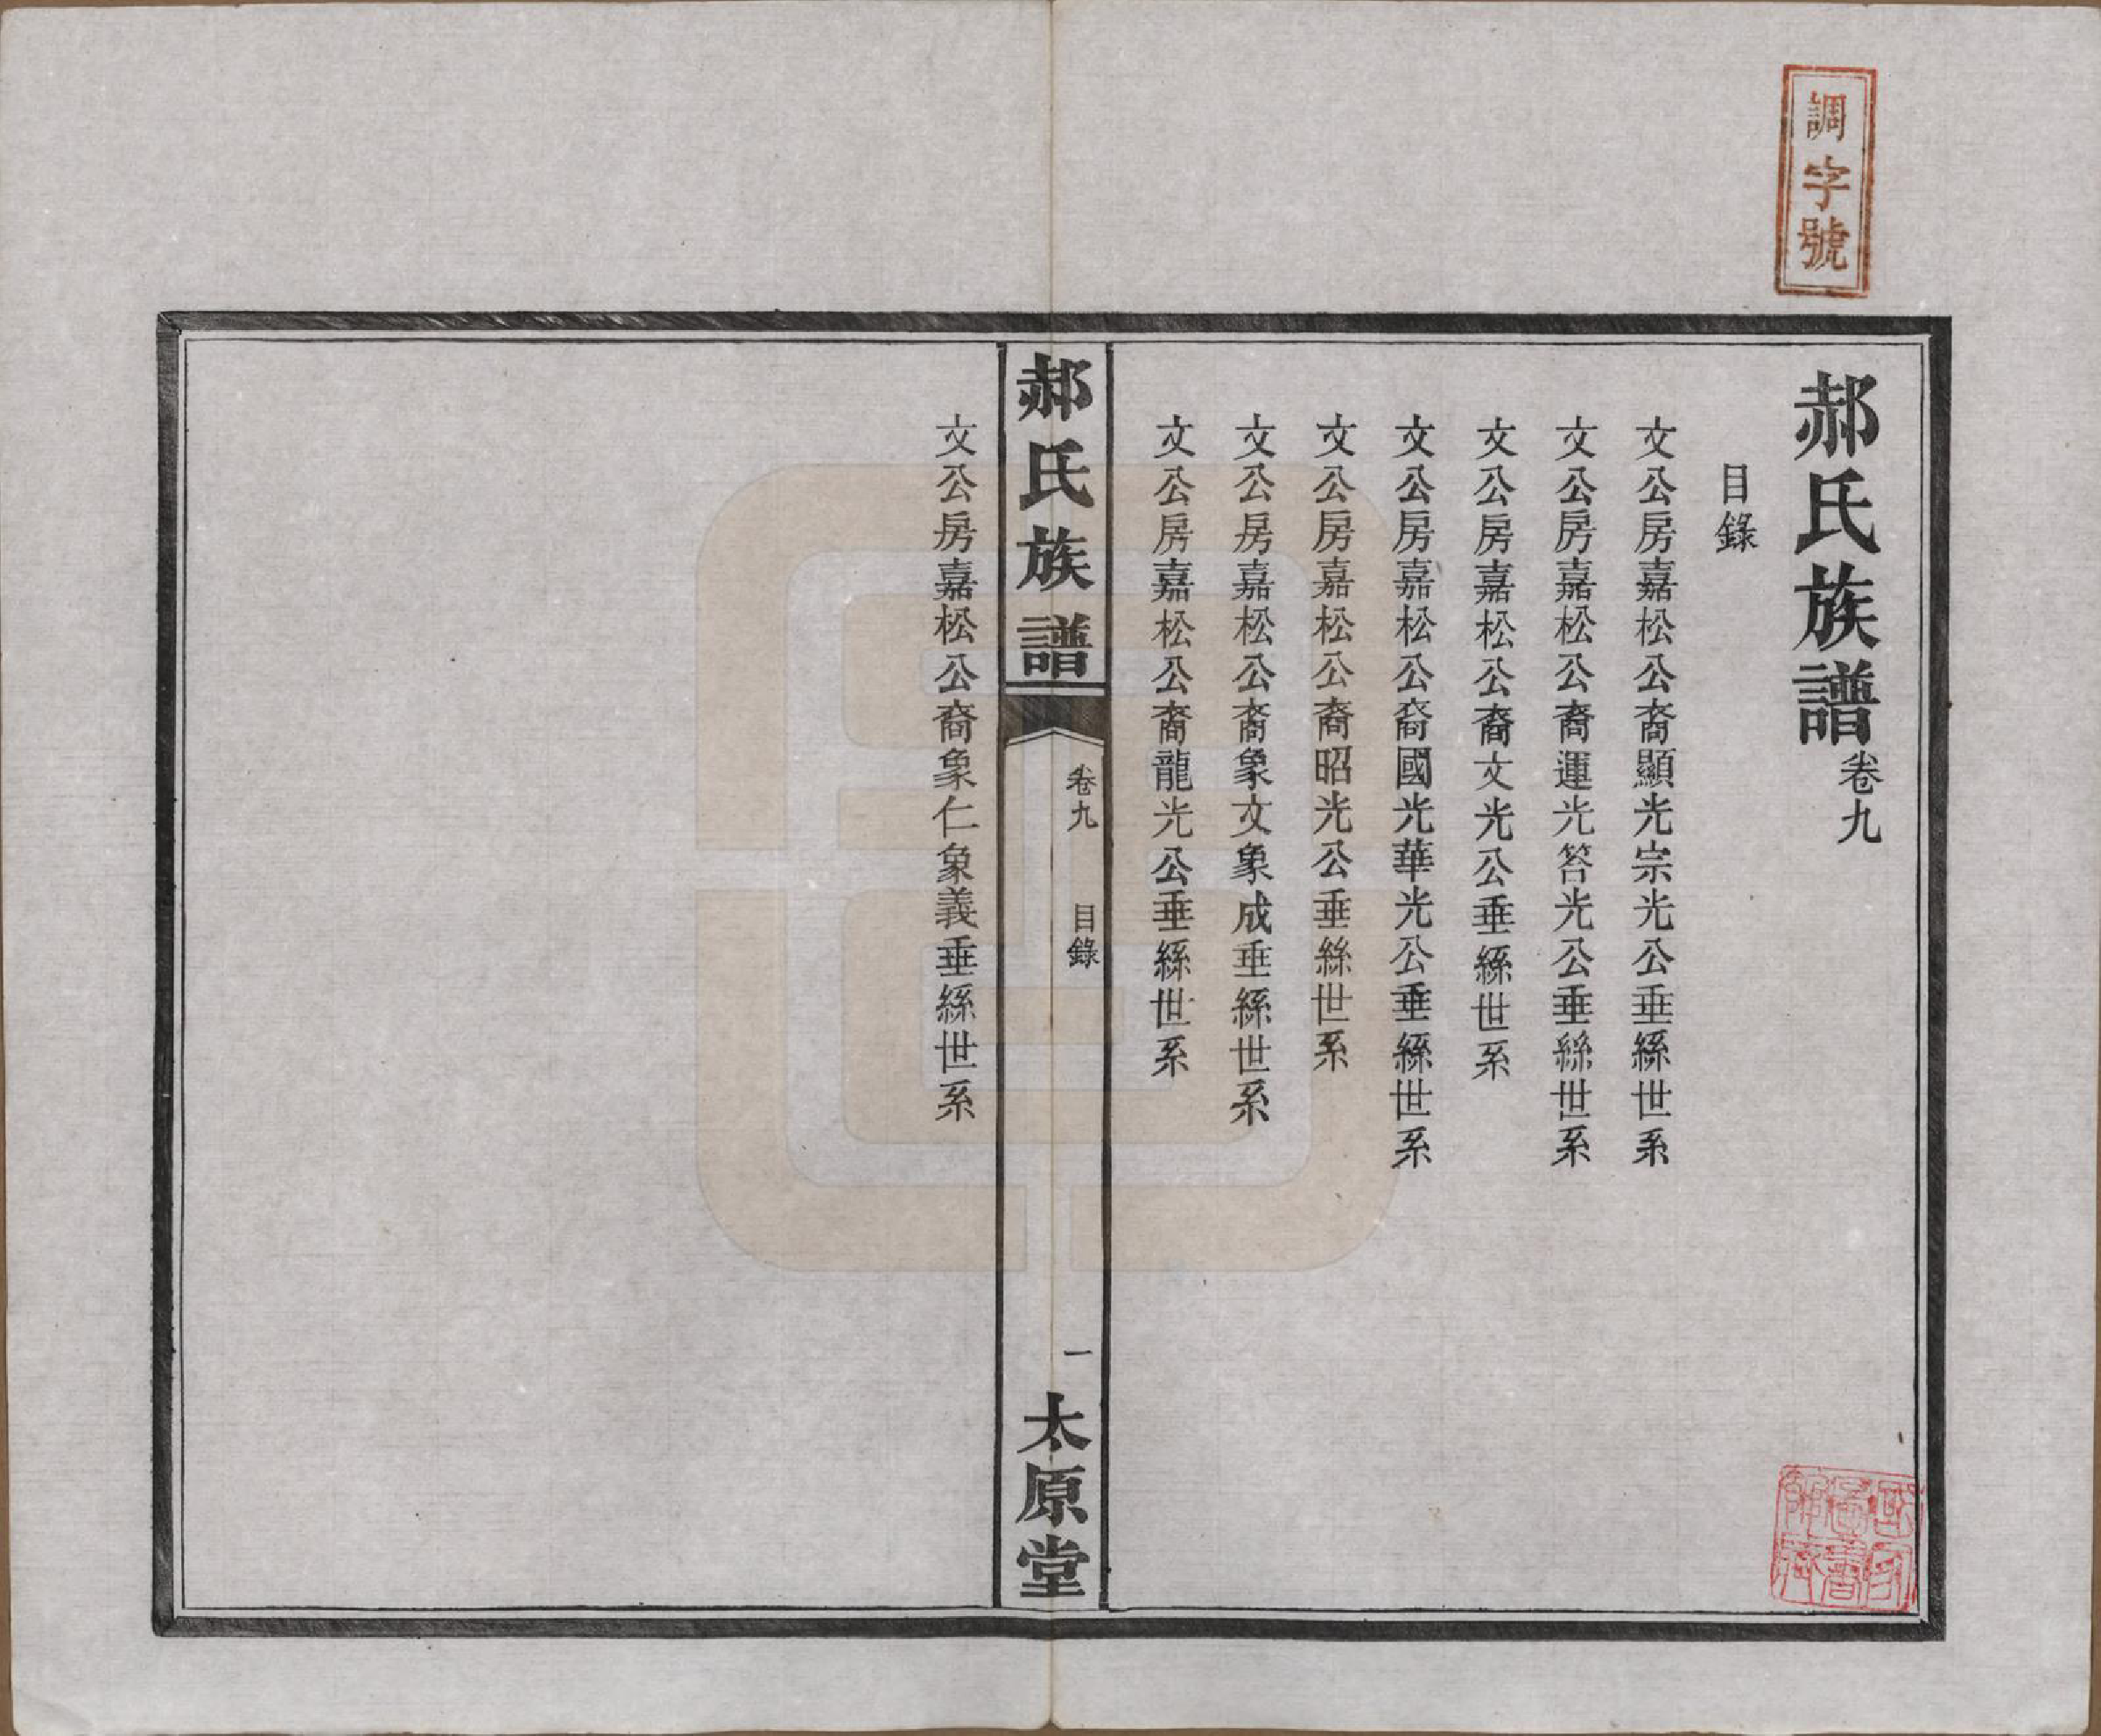 調字號
郝氏族譜卷九
目錄
文公房嘉松公裔顯光宗光公垂絲世系
文公房嘉松公裔運光答光公垂絲世系
文公房嘉松公裔文光公垂絲世系
文公房嘉松公裔國光華光公垂絲世系
文公房嘉松公裔昭光公垂絲世系
文公房嘉松公裔象文象成垂絲世系
文公房嘉松公裔龍光公垂絲世系
郝氏族譜
卷九 目錄
一
太原堂
文公房嘉松公裔象仁象義垂絲世系
國家圖書館藏